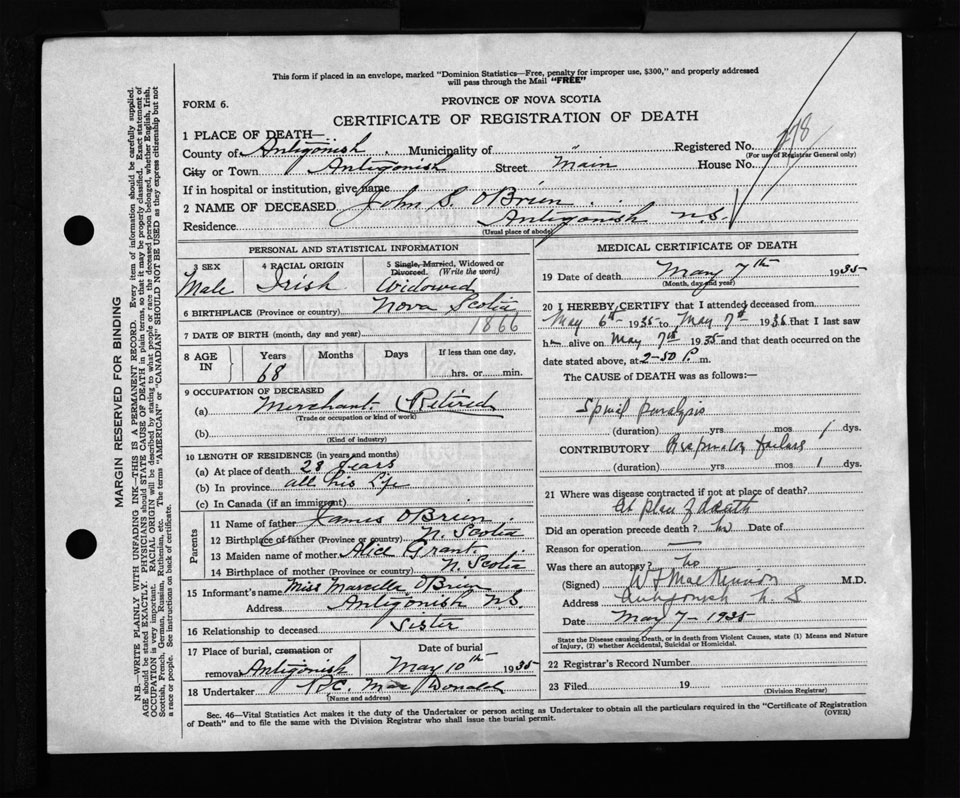 This form if placed in an envelope, marked "Dominion Statistics—Free, penalty for improper use, $300," and properly addressed
will pass through the Mail "FREE"
FORM 6.
PROVINCE OF NOVA SCOTIA
CERTIFICATE OF REGISTRATION OF DEATH
1 PLACE OF DEATH—
County of Antigonish Municipality of " Registered No. 178
(For use of Registrar General only)
City or Town Antigonish Street Main House No.
If in hospital or institution, give name
2 NAME OF DECEASED John S. O'Brien
Residence Antigonish N.S.
(Usual place of abode)
PERSONAL AND STATISTICAL INFORMATION
3 SEX 4 RACIAL ORIGIN 5 Single, Married, Widowed or
Divorced. (Write the word)
Male Irish Widowed
6 BIRTHPLACE (Province or country) Nova Scotia
7 DATE OF BIRTH (month, day and year) 1866
8 AGE IN Years Months Days If less than one day,
68 hrs. or min.
9 OCCUPATION OF DECEASED
(a) Merchant (Retired
(Trade or occupation or kind of work)
(b)
(Kind of industry)
10 LENGTH OF RESIDENCE (in years and months)
(a) At place of death 28 years
(b) In province all his life
(c) In Canada (if an immigrant)
Parents
11 Name of father James O'Brien
12 Birthplace of father (Province or country) N. Scotia
13 Maiden name of mother Alice Grant
14 Birthplace of mother (Province or country) N. Scotia
15 Informant's name Miss Marcella O'Brien
Address Antigonish N.S.
16 Relationship to deceased Sister
17 Place of burial, cremation or Date of burial
removal Antigonish May 10th 1935
18 Undertaker R.C. MacDonald
(Name and address)
MEDICAL CERTIFICATE OF DEATH
19 Date of death May 7th 1935
(Month, day and year)
20 I HEREBY CERTIFY that I attended deceased from
May 6th 1935 to May 7th 1935 that I last saw
h alive on May 7th 1935 and that death occurred on the
date stated above, at 2-50 P. m.
The CAUSE of DEATH was as follows:—
Spinal paralysis
(duration) yrs. mos. 1 dys.
CONTRIBUTORY Respiratory failure
(duration) yrs. mos. 1 dys.
21 Where was disease contracted if not at place of death?
at place of death
Did an operation precede death? no Date of
Reason for operation —
Was there an autopsy? no
(Signed) W F MacKinnon M.D.
Address Antigonish N. S
Date May 7 - 1935
State the Disease causing Death, or in death from Violent Causes, state (1) Means and Nature
of Injury, (2) whether Accidental, Suicidal or Homicidal.
22 Registrar's Record Number
23 Filed 19
(Division Registrar)
Sec. 46—Vital Statistics Act makes it the duty of the Undertaker or person acting as Undertaker to obtain all the particulars required in the "Certificate of Registration
of Death" and to file the same with the Division Registrar who shall issue the burial permit. (OVER)
MARGIN RESERVED FOR BINDING
N.B.—WRITE PLAINLY WITH UNFADING INK—THIS IS A PERMANENT RECORD. Every item of information should be carefully supplied.
AGE should be stated EXACTLY. PHYSICIANS should STATE CAUSE OF DEATH in plain terms, so that it may be properly classified. Exact statement of
OCCUPATION is very important. RACIAL ORIGIN will be described by stating to what people or race the deceased person belonged, whether English, Irish,
Scottish, French, German, Russian, Ruthenian, etc. The terms "AMERICAN" or "CANADIAN" SHOULD NOT BE USED as they express citizenship but not
a race or people. See instructions on back of certificate.